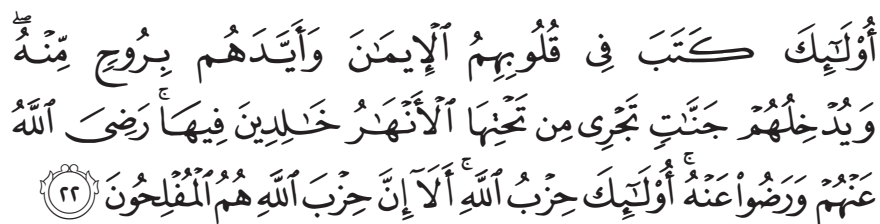 أُوْلَٰٓئِكَ كَتَبَ فِى قُلُوبِهِمُ ٱلْإِيمَٰنَ وَأَيَّدَهُم بِرُوحٍ مِّنْهُ ۖ
وَيُدْخِلُهُمْ جَنَّٰتٍ تَجْرِى مِن تَحْتِهَا ٱلْأَنْهَٰرُ خَٰلِدِينَ فِيهَا ۚ رَضِىَ ٱللَّهُ
عَنْهُمْ وَرَضُوا۟ عَنْهُ ۚ أُوْلَٰٓئِكَ حِزْبُ ٱللَّهِ ۚ أَلَآ إِنَّ حِزْبَ ٱللَّهِ هُمُ ٱلْمُفْلِحُونَ ٢٢